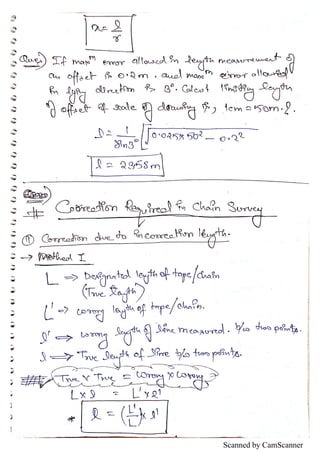 n = l/r
Ques:) If maxm error allowed in length measurement of
an offset is 0.2m. and maxm error allowed
in lying direction is 3°. Calcut limiting length
of offset if scale of drawing is, 1cm = 50m.?.
l = 1/sin3° √0.025×50² - 0.2²
l = 23.58m
# Correction Required in Chain Survey
① Correction due to incorrection length.
→ Method I
L ⇒ Designated length of tape/chain
(True length)
L' ⇒ wrong length of tape/chain.
l' ⇒ wrong length of line measured. b/w two points.
l ⇒ True length of line b/w two points.
True × True = Wrong × Wrong
L × l = L' × l'
* l = (L'/L) × l'
Scanned by CamScanner